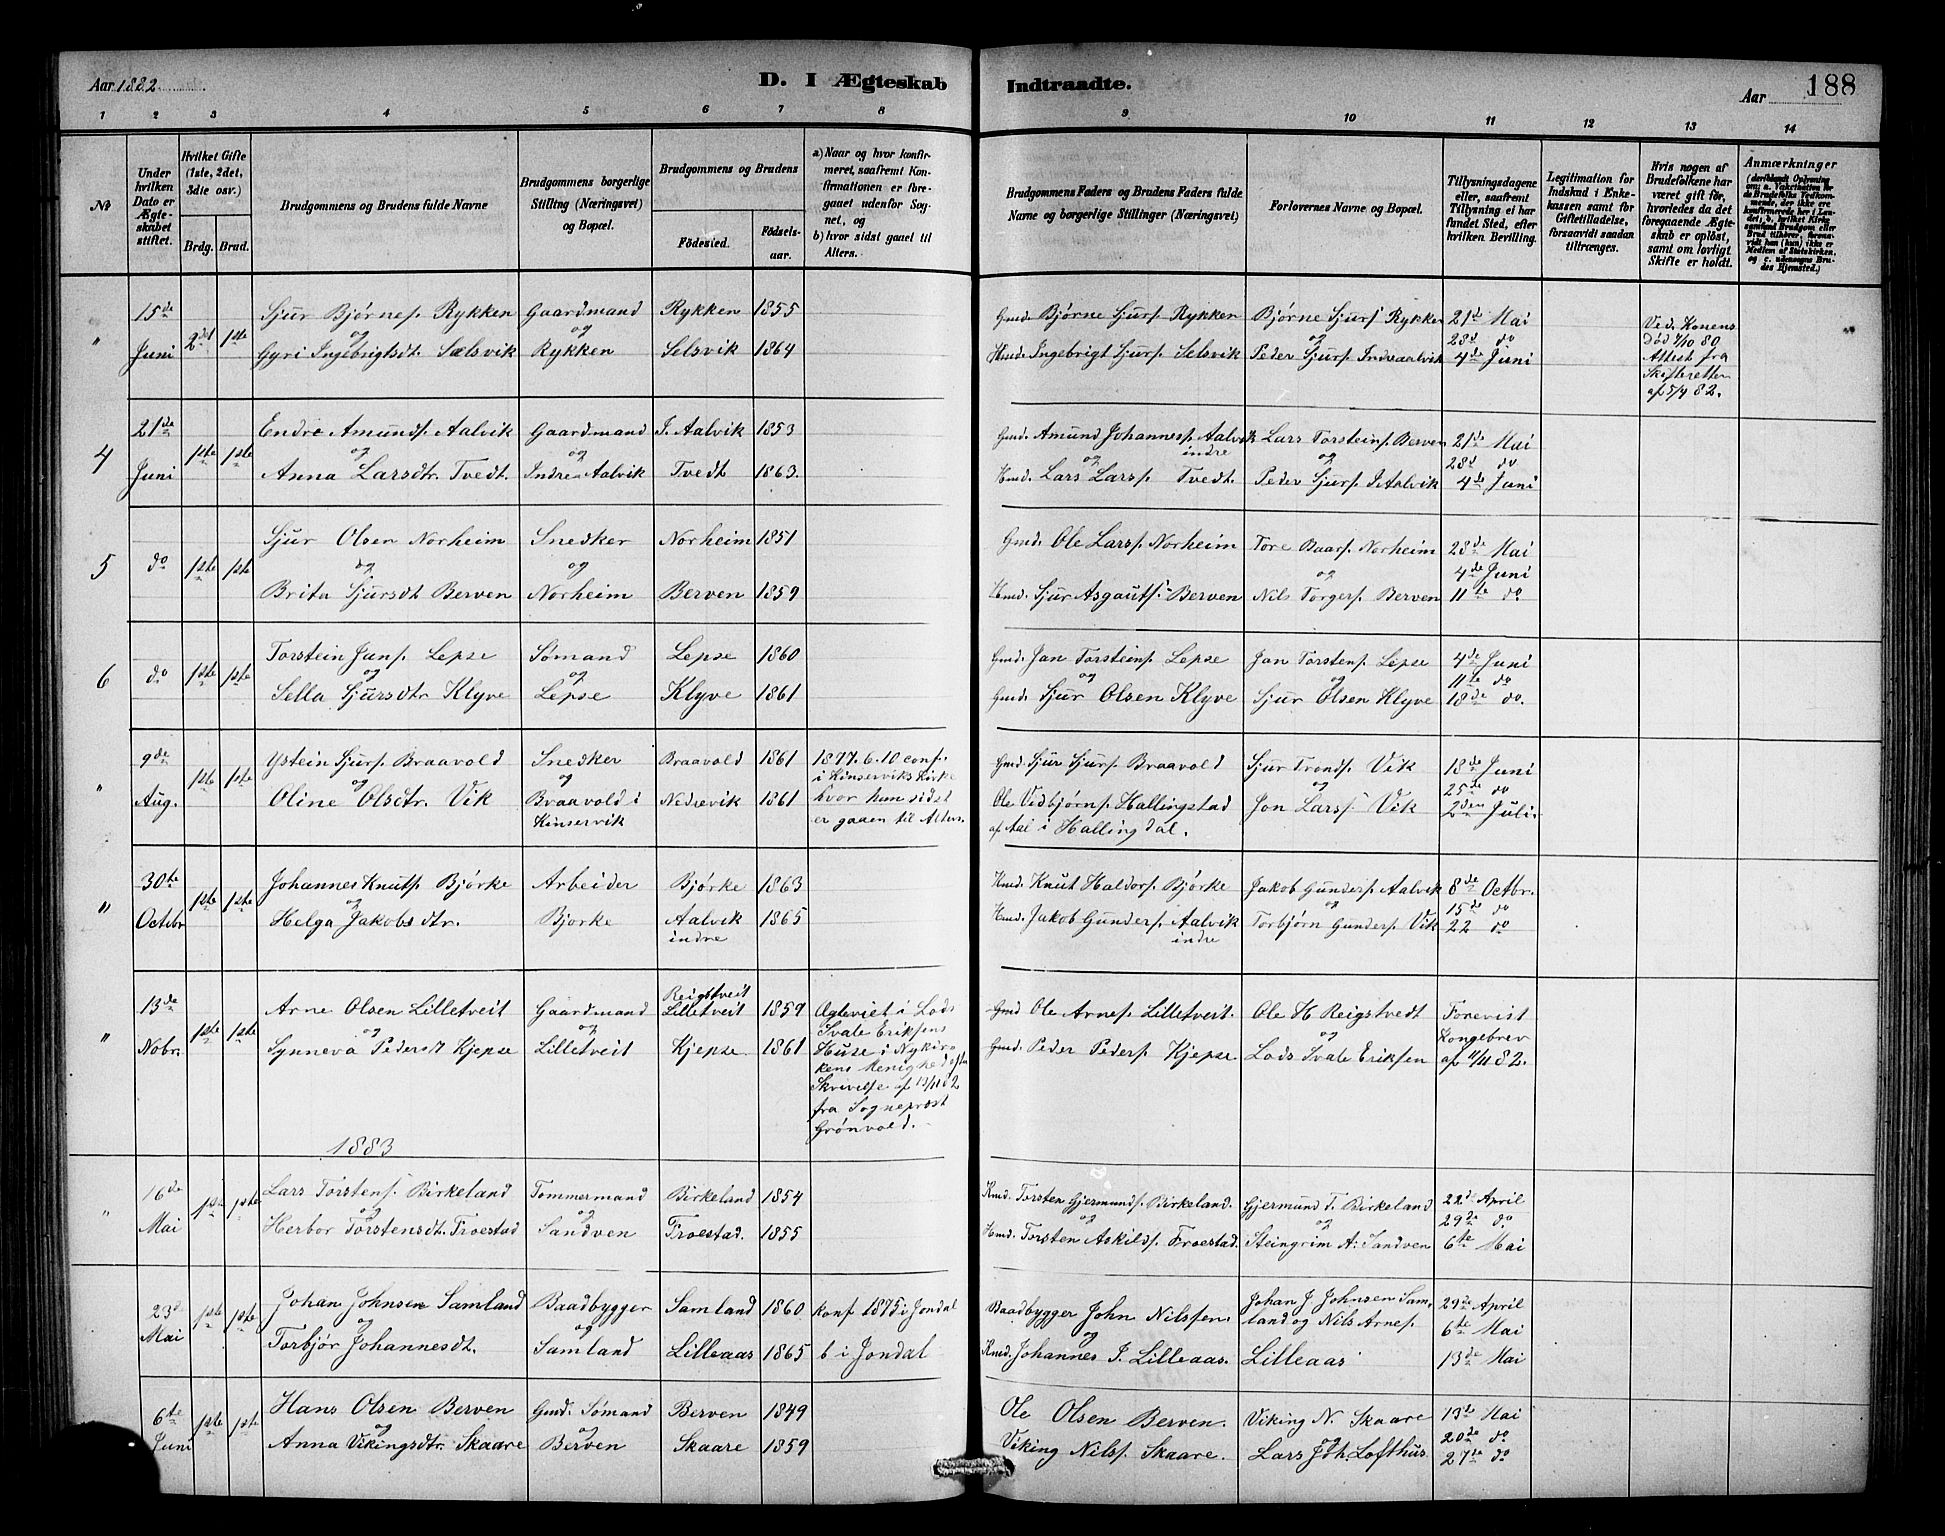 Aar 1882
D. I Ægteskab
Indtraadte.
Aar
188
1 2 3 4 5 6 7 8 9 10 11 12 13 14
No
Under hvilken Dato er Ægteskabet stiftet.
Hvilket Gifte (1ste, 2det, 3die osv.)
Brdg. Brud.
Brudgommens og Brudens fulde Navne
Brudgommens borgerlige Stilling (Næringsvei) og Bopæl.
Brudgommens og Brudens
Fødested. Fødselsaar.
a) Naar og hvor konfirmeret, saafremt Konfirmationen er foregaaet udenfor Sognet, og
b) hvor sidst gaaet til Alters.
Brudgommens Faders og Brudens Faders fulde Navne og borgerlige Stillinger (Næringsvei)
Forlovernes Navne og Bopæl.
Tillysningsdagene eller, saafremt Tillysning ei har fundet Sted, efter hvilken Bevilling.
Legitimation for Indskud i Enkekassen samt for Giftetilladelse, forsaavidt saadan tiltrænges.
Hvis nogen af Brudefolkene har været gift før, hvorledes da det foregaaende Ægteskab er opløst, samt om lovligt Skifte er holdt.
Anmærkninger
" 15de Juni 2det 1ste
Sjur Bjørnes. Rykken Gaardmand Rykken 1855
og
Gyri Ingebrigtsdt. Sælsvik Rykken Selsvik 1864
Gmd. Bjørne Sjurs. Rykken Bjørne Sjurs. Rykken 21de Mai
28d do
Hmd. Ingebrigt Sjurs. Selsvik Peder Sjurs. Indreaalvik 4de Juni
Ved Konens
død 7/10 80
Attest fra
Skifteretten
af 5/4 82.
4 21de Juni 1ste 1ste
Endre Amunds. Aalvik Gaardmand I. Aalvik 1853
og
Anna Larsdtr. Tvedt. Indre Aalvik Tvedt 1863.
Gmd. Amund Johannes. Aalvik indre Lars Torsteins. Berven 21de Mai
28d do
Hmd. Lars Lars. Tvedt. Peder Sjurs. I. Aalvik 4de Juni
5 do 1ste 1ste
Sjur Olsen Norheim Snedker Norheim 1851
og
Brita Sjursdt Berven Norheim Berven 1859
Gmd. Ole Lars. Norheim Tore Baars. Norheim 28de Mai
4de Juni
Hmd. Sjur Asgauts. Berven Nils Torgers. Berven 11te do
6 do 1ste 1ste
Torstein Jans. Lepse Sømand Lepse 1860
og
Sella Sjursdtr Klyve Lepse Klyve 1861
Gmd. Jan Torsteins. Lepse Jon Torstens. Lepse 4de Juni
11te do
Gmd. Sjur Olsen Klyve Sjur Olsen Klyve 18de do.
" 9de Aug. 1ste 1ste
Ystein Sjurs. Braavold Snedker Braavold 1861
og
Oline Olsdtr. Vik Braavold i Kinservik Nedrevik 1861
1877.6.10 conf.
i Kinserviks Kirke
hvor hun sidst
er gaaen til Alters.
Gmd. Sjur Sjurs. Braavold Sjur Tronds. Vik 18de Juni
25de do
Ole Vidbjørns. Hallingstad Jon Lars. Vik 2den Juli.
af Aal i Hallingdal.
" 30te Octbr 1ste 1ste
Johannes Knuts. Bjørke Arbeider Bjørke 1863
og
Helga Jakobsdtr. Bjorke Aalvik indre 1865
Hmd. Knut Haldors. Bjørke Jakob Gunders. Aalvik 8de Octbr.
15de do
Hmd. Jakob Gunders. Aalvik indre Torbjørn Gunders. Vik 22 do
" 13de Nobr. 1ste 1ste
Arne Olsen Lilletveit Gaardmand Reigstveit Lilletveit 1859
og
Synneva Pedersdt Kjepse Lilletveit Kjepse 1861
Ægteviet i Lods
Ivale Eriksens
Huse i Nykir-
kens Menighed efter
Skrivelse af 13/11 82
fra Sogneprest
Grønvold.
Gmd Ole Arnes. Lilletveit. Ole H Reigstvedt Forevist
og
Gmd. Peder Peders. Kjepse Lods Ivale Eriksen Kongebrev
af 11/11 82.
1883
" 16de Mai 1ste 1ste
Lars Torstens. Birkeland Tommermand Birkeland 1854
og
Herbor Torstensdt. Froestad Sandven Froestad. 1855
Kmd. Torsten Gjermunds. Birkeland. Gjermund T. Birkeland 22de April
29de do
Hmd. Torsten Askilds. Froestad. Steingrim A. Sandven 6te Mai
23de Mai 1ste 1ste
Johan Johnsen Samland Baadbygger Samland 1860 Konf 1875 i Jondal
og
Torbjør Johannesdt. Samland Lilleaas 1865 b i Jondal
Baadbygger John Nilssen. Johan J Johnsen Sam- 29de April
og land og Nils Arnes. 6te Mai
Kmd. Johannes J. Lilleaas. Lilleaas 13de Mai
6te Juni 1ste 1ste
Hans Olsen Berven Gmd. Sømand Berven 1849
og
Anna Vikingsdtr. Skaare Berven Skaare 1859
Ole Olsen Berven. Viking N. Skaare 13de Mai
og 20de do
Viking Nils. Skaare. Lars Joh. Lofthus 27de do